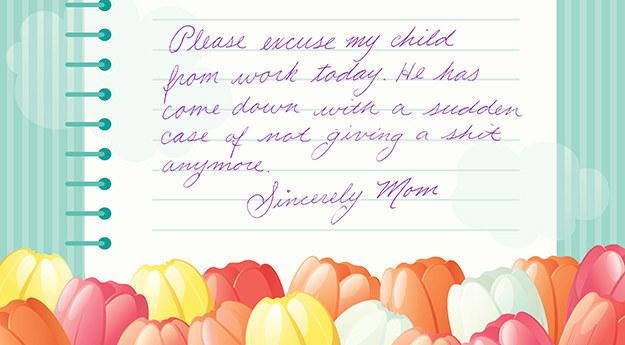 Please excuse my child
from work today. He has
come down with a sudden
case of not giving a shit
anymore.
Sincerely Mom